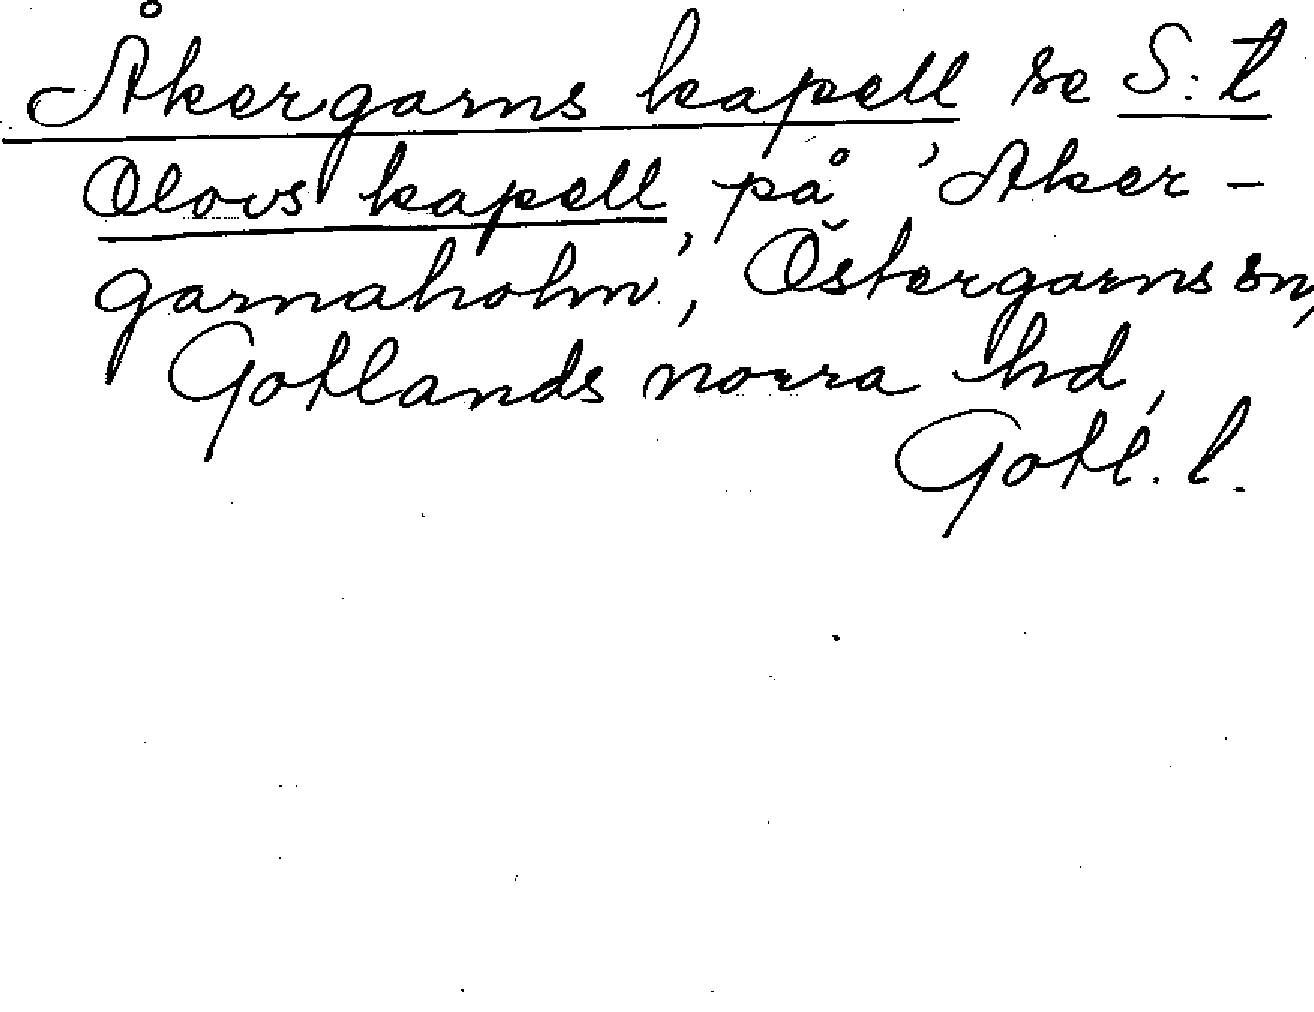 Åkergarns kapell se S:t
Olovs kapell, på 'Aker-
garnaholm', Östergarns sn,
Gotlands norra hd,
Gotl. l.